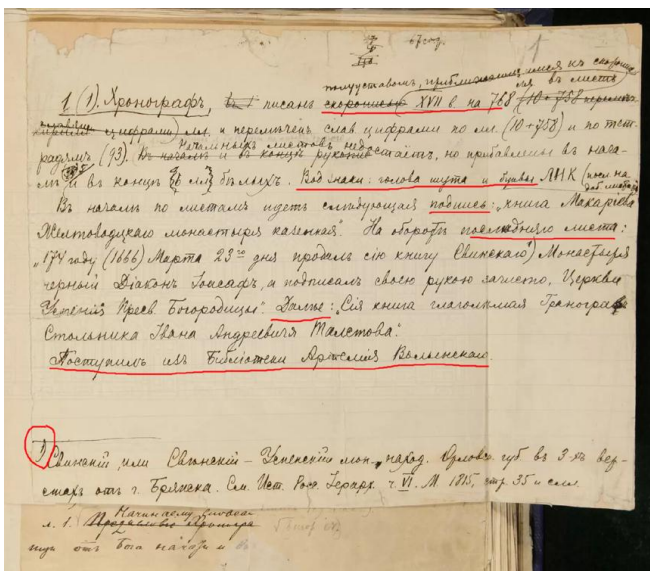 67 год.
1
полууставомъ, приближающимся къ скорописи
1. (1). Хронографъ, писанъ скорописью XVII в. на 768 (10+758 перемѣч.
цифрами) лл. и перемѣченъ слав цифрами по лл. (10+758) и по тет-
радямъ (93). Въ началѣ и въ концѣ Начальныхъ листовъ недостаетъ, но прибавлены въ нача-
лѣ и въ концѣ бѣлыхъ. Вод знаки: голова шута и буквы АНК (посл на
доб. листахъ)
Въ началѣ по листамъ идетъ слѣдующая подпись: „книга Макарьева
Желтоводцкаго монастыря казенная". На оборотѣ послѣдняго листа:
„174 году (1666) Марта 23го дня продалъ сію книгу Свинскаго¹) Монастыря
черній Діаконъ Іоасафъ, а подписалъ своею рукою зачисто, Церкви
Успенія Пресв Богородицы". Далѣе: „Сія книга глаголемая Гранографъ
Стольника Ивана Андреевича Толстова".
Поступилъ изъ Бібліотеки Артемія Волынскаго.
¹) Свинскій, или Свѣнскій – Успенскій мон., наход. Орловс. губ въ 3-хъ вер-
стахъ отъ г. Брянска. См. Ист. Росс. Іерарх. ч. VI. М 1815, стр 35 и слл.
л. 1.
отъ Бога начаъ и